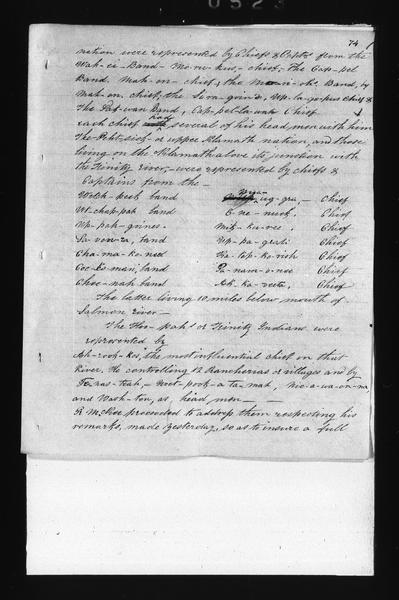 74
nation were represented by Chiefs & Capts. from the
Wah-si-Band-Mo-ru-kus,-chief,-The Cap-pel
Band, Mah-on-chief, the Band, by
Mah-on, chief, the Sera-goin's, Up-la-gopus Chief &
The Pak-wan Band, Cap-pel-la-wah Chief
each chief had several of his head men with him
The Peht-sick or upper Klamath nation, and those
living on the Klamath above its junction with
the Trinity River,-were represented by chiefs &
Captains from the-
Weitch-peck band ug-gra,- Chief
Wt-chap-pah band E-ne-nuck, Chief
Up-pah-goines. Mik-ku-ree. Chief
Sa-von-ra, band Up-pa-grash Chief
Cha-ma-ko-nec Ka-top-ko-rish Chief
Coc-ko-man, band Pa-nam-o-nee Chief
Chee-nah band Ak-ka-reeta, Chief
The latter living 10 miles below mouth of
Salmon river-
The Hoo-pah's or Trinity Indians were
represented by
Ah-rook-kos, the most influential chief on that
River. He controlling 12 Rancherias or villages and by
Te-nas-teah,- Meet-pook-a-ta-mah, Nic-a-wa-on-na,
and Wash-ton, as, head men-
R McKee proceeded to address them respecting his
remarks, made yesterday, so as to insure a full